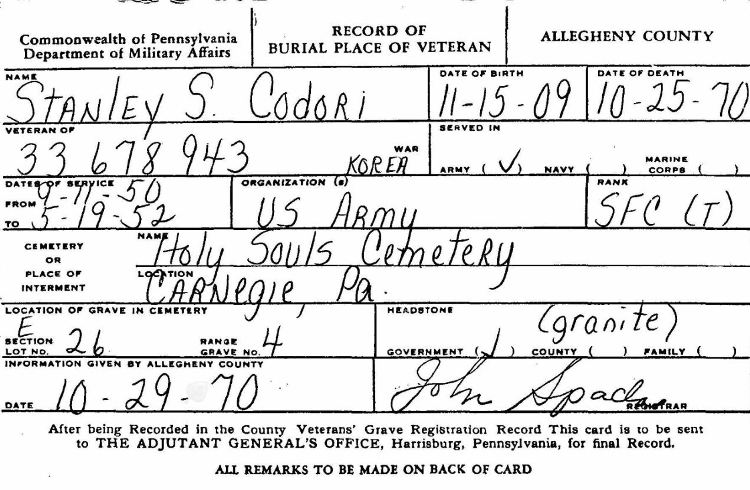 Commonwealth of Pennsylvania
Department of Military Affairs
RECORD OF
BURIAL PLACE OF VETERAN
ALLEGHENY COUNTY
NAME
STANLEY S. CODORI
DATE OF BIRTH
11-15-09
DATE OF DEATH
10-25-70
VETERAN OF
33 678 943
KOREA WAR
SERVED IN
ARMY (✓) NAVY ( ) MARINE CORPS ( )
DATES OF SERVICE
FROM 9-11-50
TO 5-19-52
ORGANIZATION (s)
US ARMY
RANK
SFC (T)
CEMETERY
OR
PLACE OF
INTERMENT
NAME
Holy Souls Cemetery
LOCATION
CARNegie, Pa.
LOCATION OF GRAVE IN CEMETERY
E
SECTION
LOT NO. 26
RANGE
GRAVE NO. 4
HEADSTONE
(granite)
GOVERNMENT (✓) COUNTY ( ) FAMILY ( )
INFORMATION GIVEN BY ALLEGHENY COUNTY
DATE 10-29-70
John
REGISTRAR
After being Recorded in the County Veterans' Grave Registration Record This card is to be sent
to THE ADJUTANT GENERAL'S OFFICE, Harrisburg, Pennsylvania, for final Record.
ALL REMARKS TO BE MADE ON BACK OF CARD